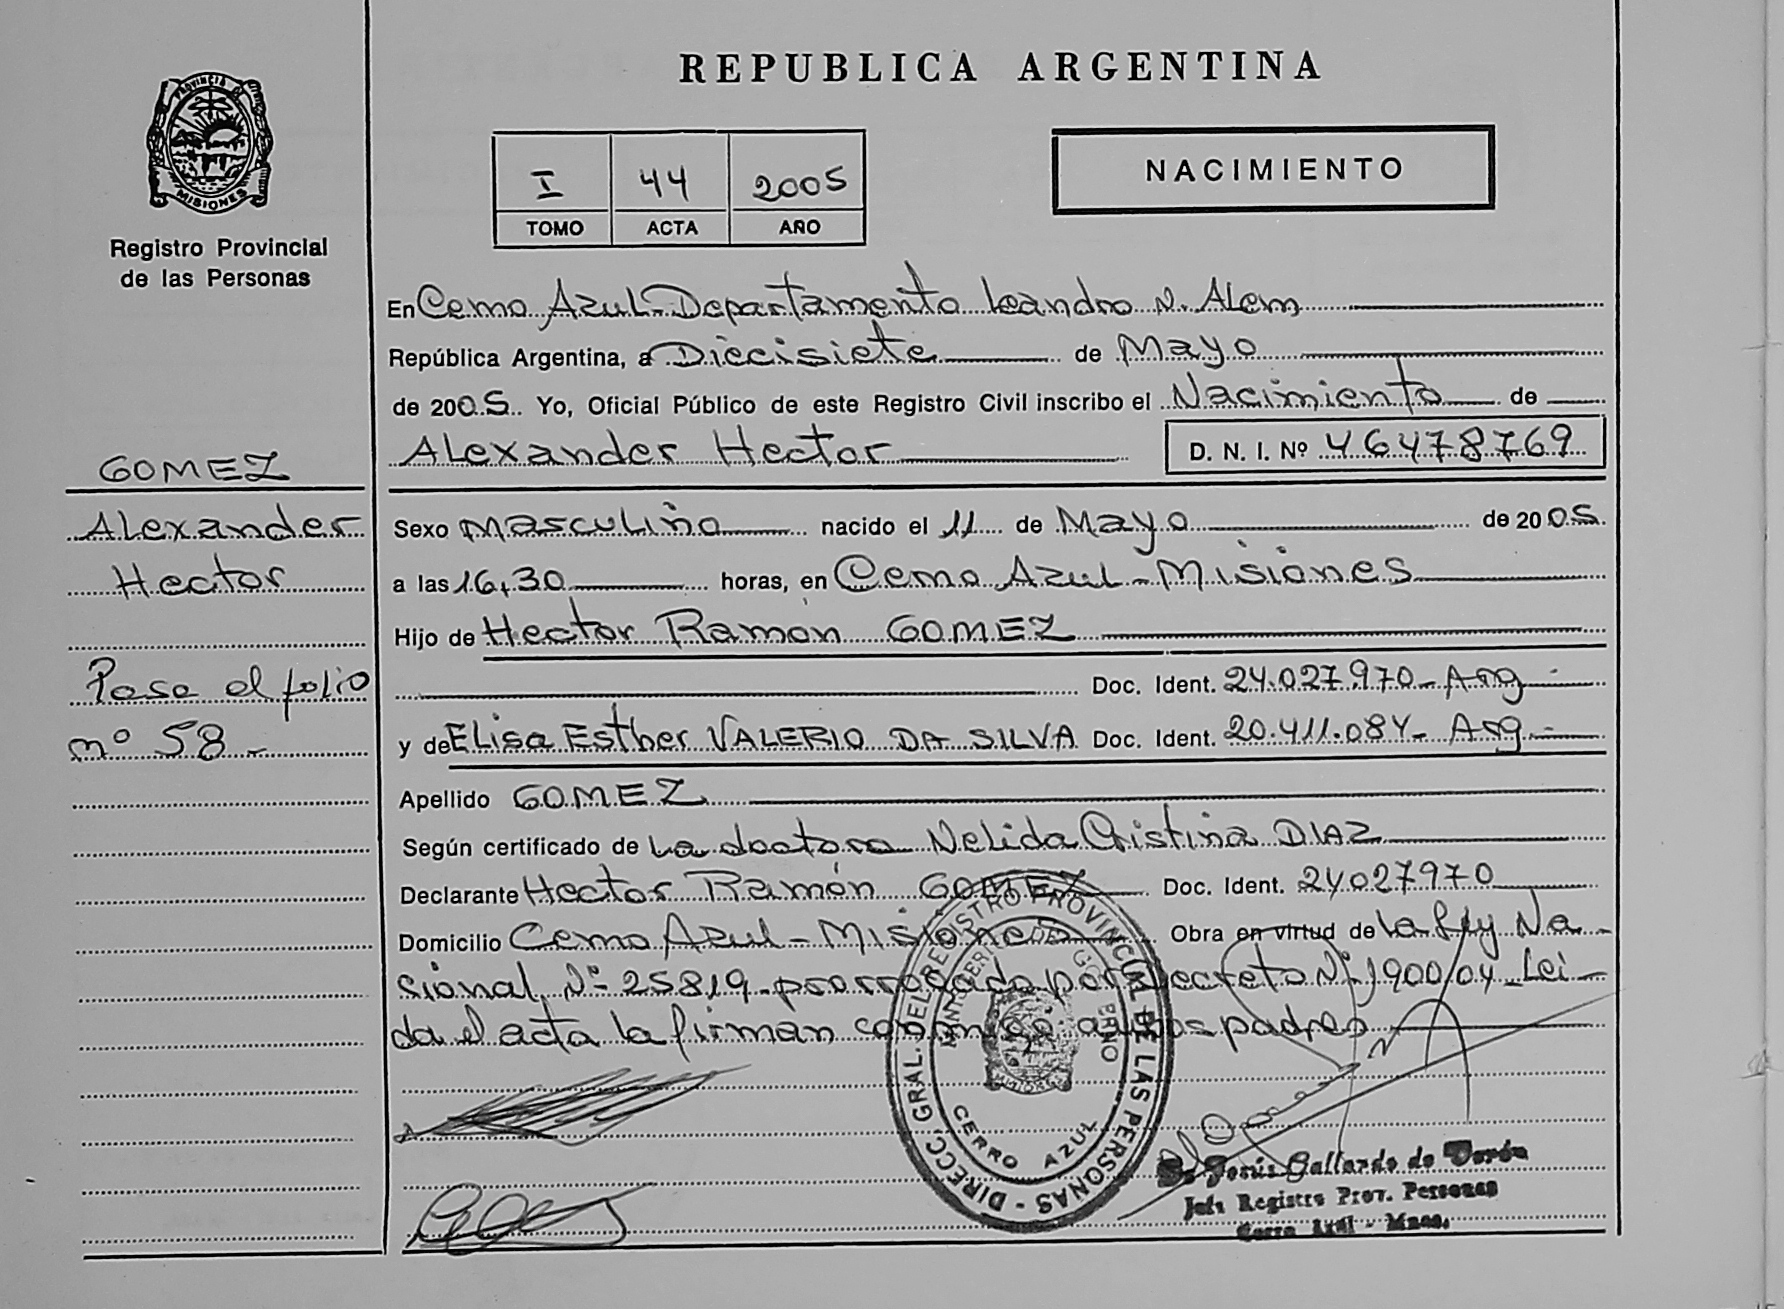 REPUBLICA ARGENTINA
PROVINCIA DE
MISIONES
Registro Provincial
de las Personas
I 44 2005
TOMO ACTA AÑO
NACIMIENTO
En Cerro Azul - Departamento Leandro N. Alem
República Argentina, a Diecisiete de Mayo
de 2005. Yo, Oficial Público de este Registro Civil inscribo el Nacimiento de
Alexander Hector D. N. I. Nº 46478769
GOMEZ
Alexander
Hector
Pasa al folio
nº 58 -
Sexo masculino nacido el 11 de Mayo de 2005.
a las 16,30 horas, en Cerro Azul - Misiones
Hijo de Hector Ramón GOMEZ
Doc. Ident. 24.027.970 - Arg -
y de Elisa Esther VALERIO DA SILVA Doc. Ident. 20.411.084 - Arg -
Apellido GOMEZ
Según certificado de La doctora Nelida Cristina DIAZ
Declarante Hector Ramón GOMEZ Doc. Ident. 24027970
Domicilio Cerro Azul - Misiones Obra en virtud de la Ley Na-
sional, Nº 25819 prorrogado por Decreto Nº 1900/04 - Lei-
da el acta la firman conmigo ambos padres
DIRECC. GRAL. DEL REGISTRO PROVINCIAL DE LAS PERSONAS -
CERRO AZUL
Jesús Gallardo de Verón
Jefe Registro Prov. Personas
Cerro Azul - Mnes.